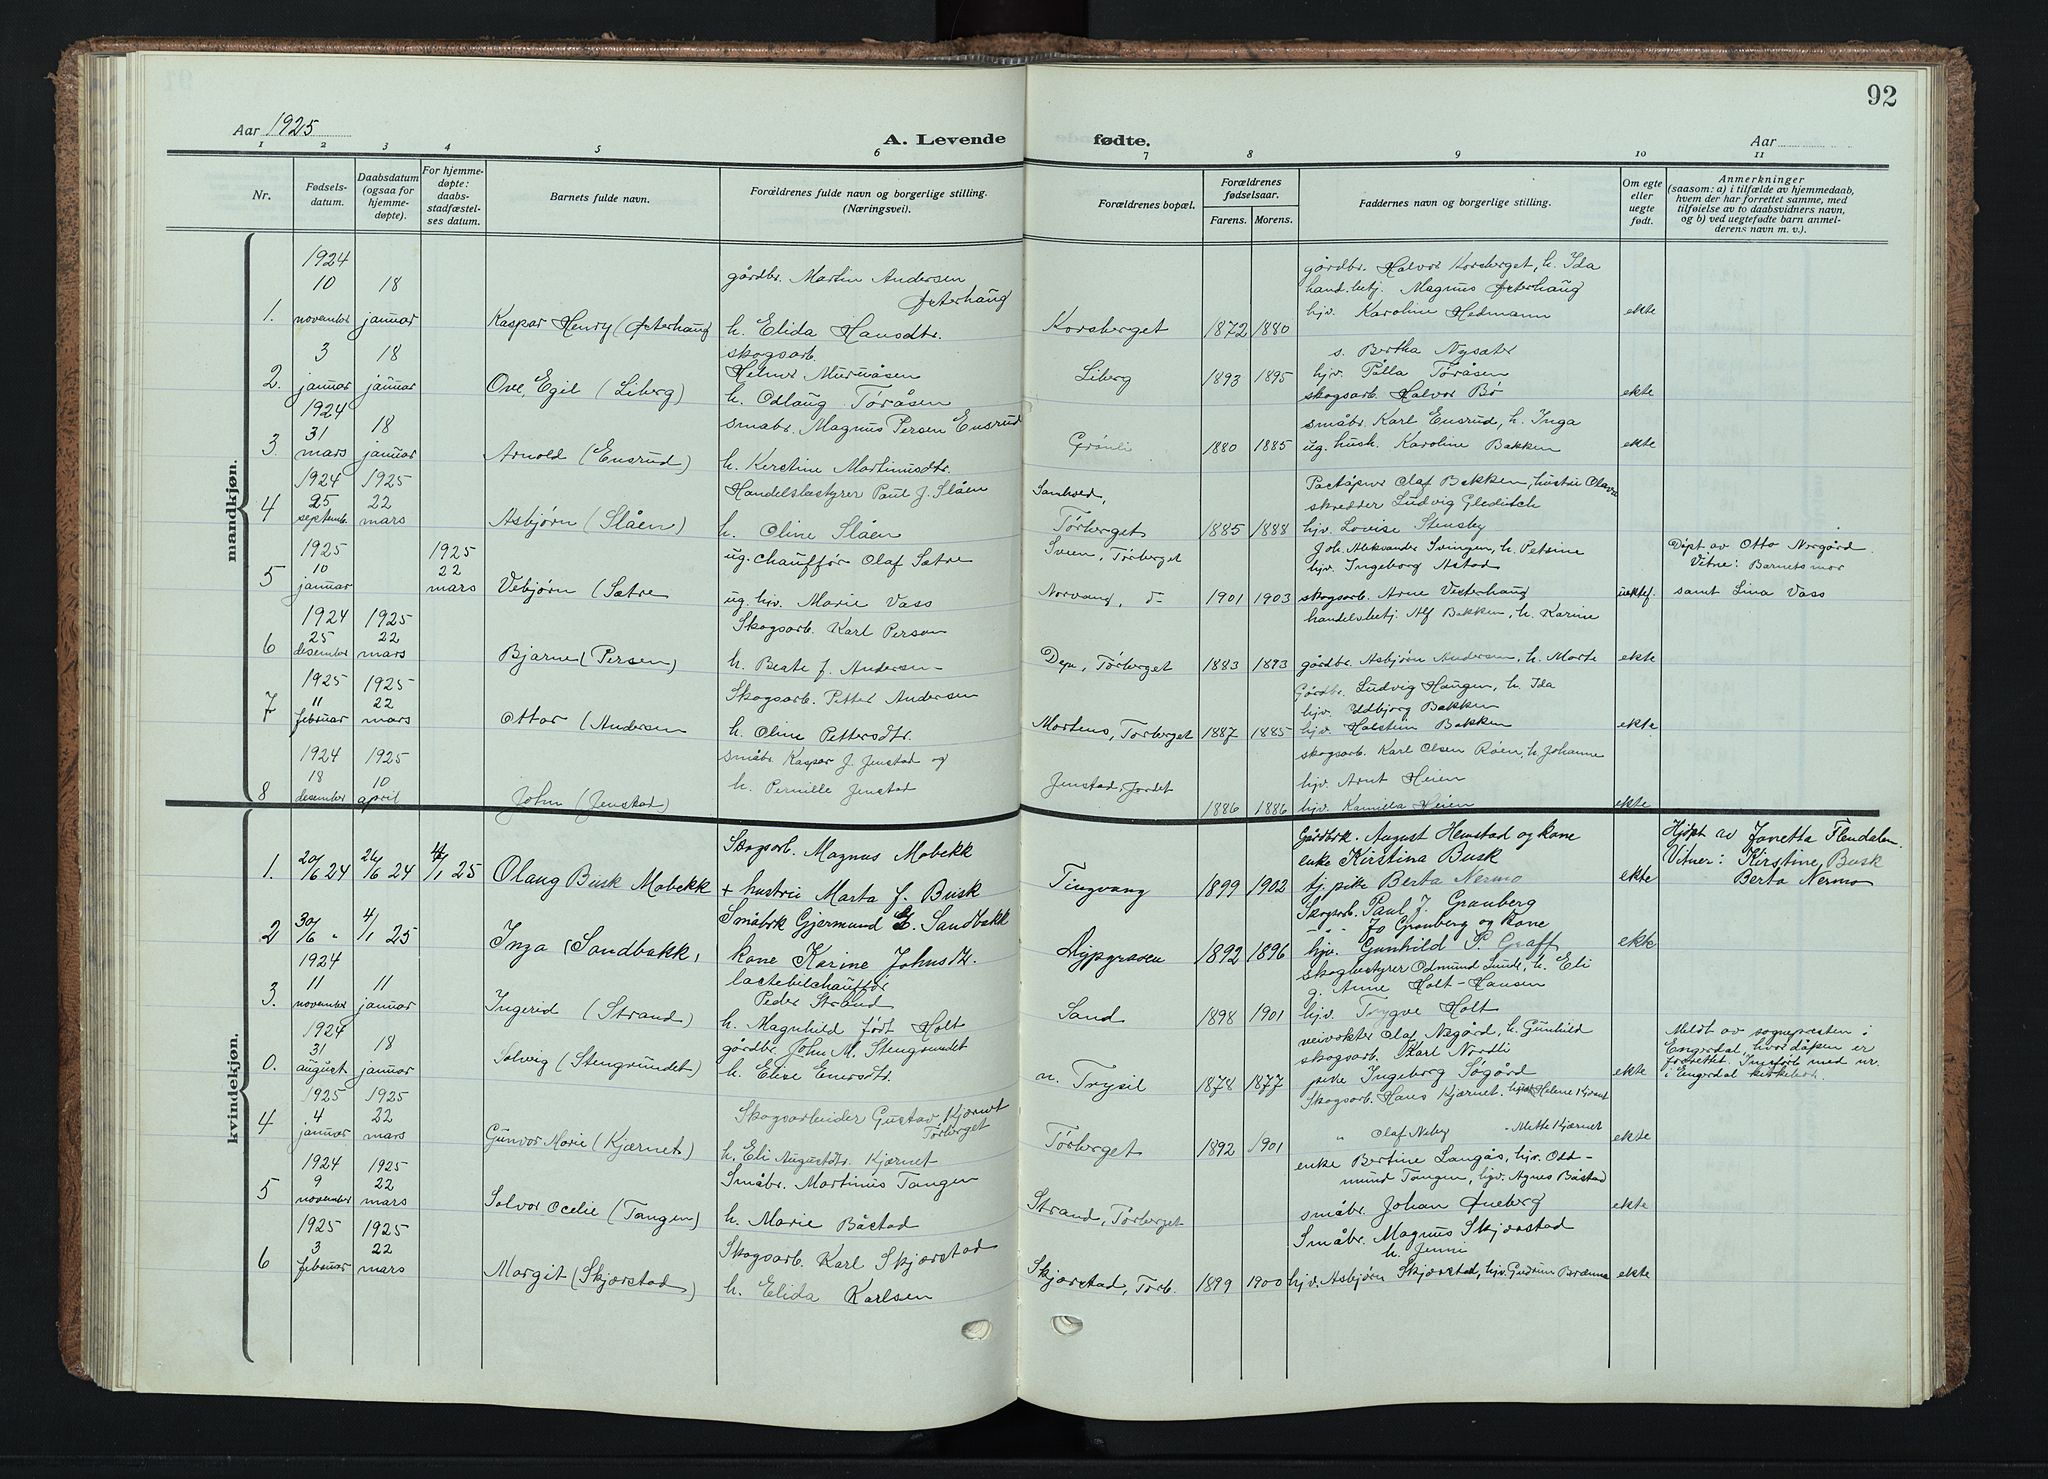 92
Aar 1925
A. Levende fødte.
Aar
1 2 3 4 5 6 7 8 9 10 11
Nr.
Fødsels-
datum.
Daabsdatum
(ogsaa for
hjemme-
døpte).
For hjemme-
døpte:
daabs-
stadfæstel-
ses datum.
Barnets fulde navn.
Forældrenes fulde navn og borgerlige stilling.
(Næringsvei).
Forældrenes bopæl.
Forældrenes
fødselsaar.
Farens. Morens.
Faddernes navn og borgerlige stilling.
Om egte
eller
uegte
født.
Anmerkninger
(saasom: a) i tilfælde av hjemmedaab,
hvem der har forrettet samme, med
tilføielse av to daabsvidners navn,
og b) ved uegtefødte barn anmel-
derens navn m. v.).
mandkjøn.
1924
10 18 gårdbr. Martin Andersen gårdbr. Halvor Korsberget, h. Ida
Østerhaug hand.betj. Magnus Østerhaug
1. november januar Kaspar Henry (Østerhaug h. Elida Hansdtr. Korsberget 1872 1880 hjv. Karoline Hedmann ekte
3 18 skogsarb. s. Bertha Nysæter
Helmer Murmåsen hjv. Palla Tøråsen
2. januar januar Ove, Egil (Liberg) h. Odlaug Tøråsen Liberg 1893 1895 skogsarb. Halvor Bø ekte
1924
31 18 småbr. Magnus Persen Ensrud småbr. Karl Ensrud, h. Inga
3 mars januar Arnold (Ensrud) h. Kerstine Martinusdtr. Grønli 1880 1885 ug. hush. Karoline Bakken ekte
1924 1925 Handelsbestyrer Paul J. Slåen Sanhved, Poståpner Olaf Bakken, hustru
25 22 skredder Ludvig Gleditsch
4 septemb. mars Asbjørn (Slåen) h. Oline Slåen Tørberget 1885 1888 hjv. Lovise Stensby
1925 1925 ug. chauffør Olaf Sætre Sveen, Tørberget Joh. Aleksander Svingen, h. Petrine Døpt av Otto Norgård
10 22 hjv. Ingeborg Astad Vitne: Barnets mor
5 januar mars Vebjørn (Sætre ug. hjv. Marie Vass Norvang, d- 1901 1903 skogsarb. Arne Vesterhaug uektef. samt Lina Vass
1924 1925 Skogsarb. Karl Person handelsbetj. Alf Bakken, h. Karine
25 22
6 desember mars Bjarne (Persen) h. Beate f. Andersen- Tørberget 1883 1893 gårdbr. Asbjørn Andersen, h. Marte ekte
1925 1925 Skogsarb. Petter Andersen Gårdbr. Ludvig Haugen, h. Ida
11 22 hjv. Bakken
7 februar mars Ottar (Andersen h. Oline Pettersdtr. Mortens, Tørberget 1887 1885 hjv. Halstein Bakken ekte
1924 1925 småbr. Kaspar J. Jenstad og skogsarb. Karl Olsen Røen, h. Johanne
18 10 h. Pernille Jenstad Jenstad, Jordet hjv. Arnt Heien
8 desember april John (Jenstad) 1886 1886 hjv. Kamilla Heien ekte
kvindekjøn.
Skogsarb. Magnus Mobekk Gårdbrk. August Hemstad og kone Hjdpt av Janetta Flendalen.
enke Kirstina Busk Vitner: Kirstine Busk
1. 20/6 24 26/6 24 4/1 25 Olaug Busk Mobekk + hustru Marta f. Busk Tingvang 1899 1902 tj.pike Berta Nermo ekte Berta Nermo
30/6 " 4/1 25 Småbrk Gjermund G. Sandbakk Skogsarb. Paul J. Granberg
" " Jo Granberg og kone
2 Inga (Sandbakk, kone Karine Johnsdtr. 1892 1896 hjv. Gunhild P. Graff ekte
1924 lastebilchauffør skogbestyrer Odmund Lunde, h. Eli
11 11 Peder Strand g. Anne Holt-Hansen
3. november januar Ingerid (Strand) h. Magnhild født Holt Sand 1898 1901 hjv. Trygve Holt
1924 veivokter Olaf Negård, h. Gunhild Meldt av sognepresten i
31 18 gårdbr. John M. Stengrundet skogsarb. Karl Nordli Engerdal, hvor dåpen er
0. august januar Solvig (Stengrundet) h. Elise Enersdtr. n. Trysil 1874 1877 pike Ingeborg Søgård ekte forrettet. Innført med nr.
i Engerdal kirkebok.
1925 1925 Skogsarbeider Gustav Kjærnet Skogsarb. Hans Kjærnet. hjv. Helene Kjærnet
4 22 Tørberget
4 januar mars Gunvor Marie (Kjærnet) h. Eli Augustdtr. Kjærnet Tørberget 1892 1901 " Olaf Neby " Mette Kjærnet ekte
1924 1925 Småbr. Martinus Tangen enke Bertine Langås, hjv. Odd-
9 22 mund Tangen, hjv. Agnes Båstad
5 november mars Solvor Ocelie (Tangen) h. Marie Båstad Strand, Tørberget småbr. Johan Øneberg ekte
1925 1925 Skogsarb. Karl Skjærstad Småbr. Magnus Skjærstad
3 22 h. Jenni
6 februar mars Margit (Skjærstad) h. Elida Karlsen Skjærstad, Tørb. 1899 1900 hjv. Asbjørn Skjærstad, hjv. Gudrun Brænna ekte